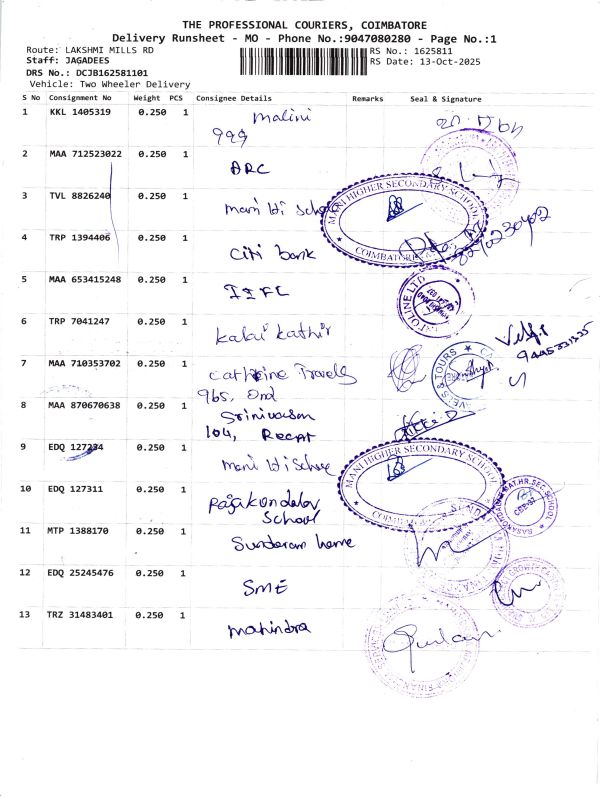 THE PROFESSIONAL COURIERS, COIMBATORE
Delivery Runsheet - MO - Phone No.:9047080280 - Page No.:1
Route: LAKSHMI MILLS RD
Staff: JAGADEES
DRS No.: DCJB162581101
Vehicle: Two Wheeler Delivery
RS No.: 1625811
RS Date: 13-Oct-2025
S No Consignment No Weight PCS Consignee Details Remarks Seal & Signature
1 KKL 1405319 0.250 1 Malini
999
2 MAA 712523022 0.250 1 ARC
3 TVL 8826240 0.250 1 mani Hi School
MANI HIGHER SECONDARY SCHOOL
COIMBATORE
4 TRP 1394406 0.250 1 Citi bank
5 MAA 653415248 0.250 1 IIFL
6 TRP 7041247 0.250 1 Kalai Kathir
7 MAA 710353702 0.250 1 Catherine Travels
965, Ond
8 MAA 870670638 0.250 1 Srinivasan
104,
9 EDQ 127234 0.250 1 Mani Hi School
MANI HIGHER SECONDARY SCHOOL
10 EDQ 127311 0.250 1
School
11 MTP 1388170 0.250 1 Sundaram home
12 EDQ 25245476 0.250 1 SME
13 TRZ 31483401 0.250 1 Mahindra